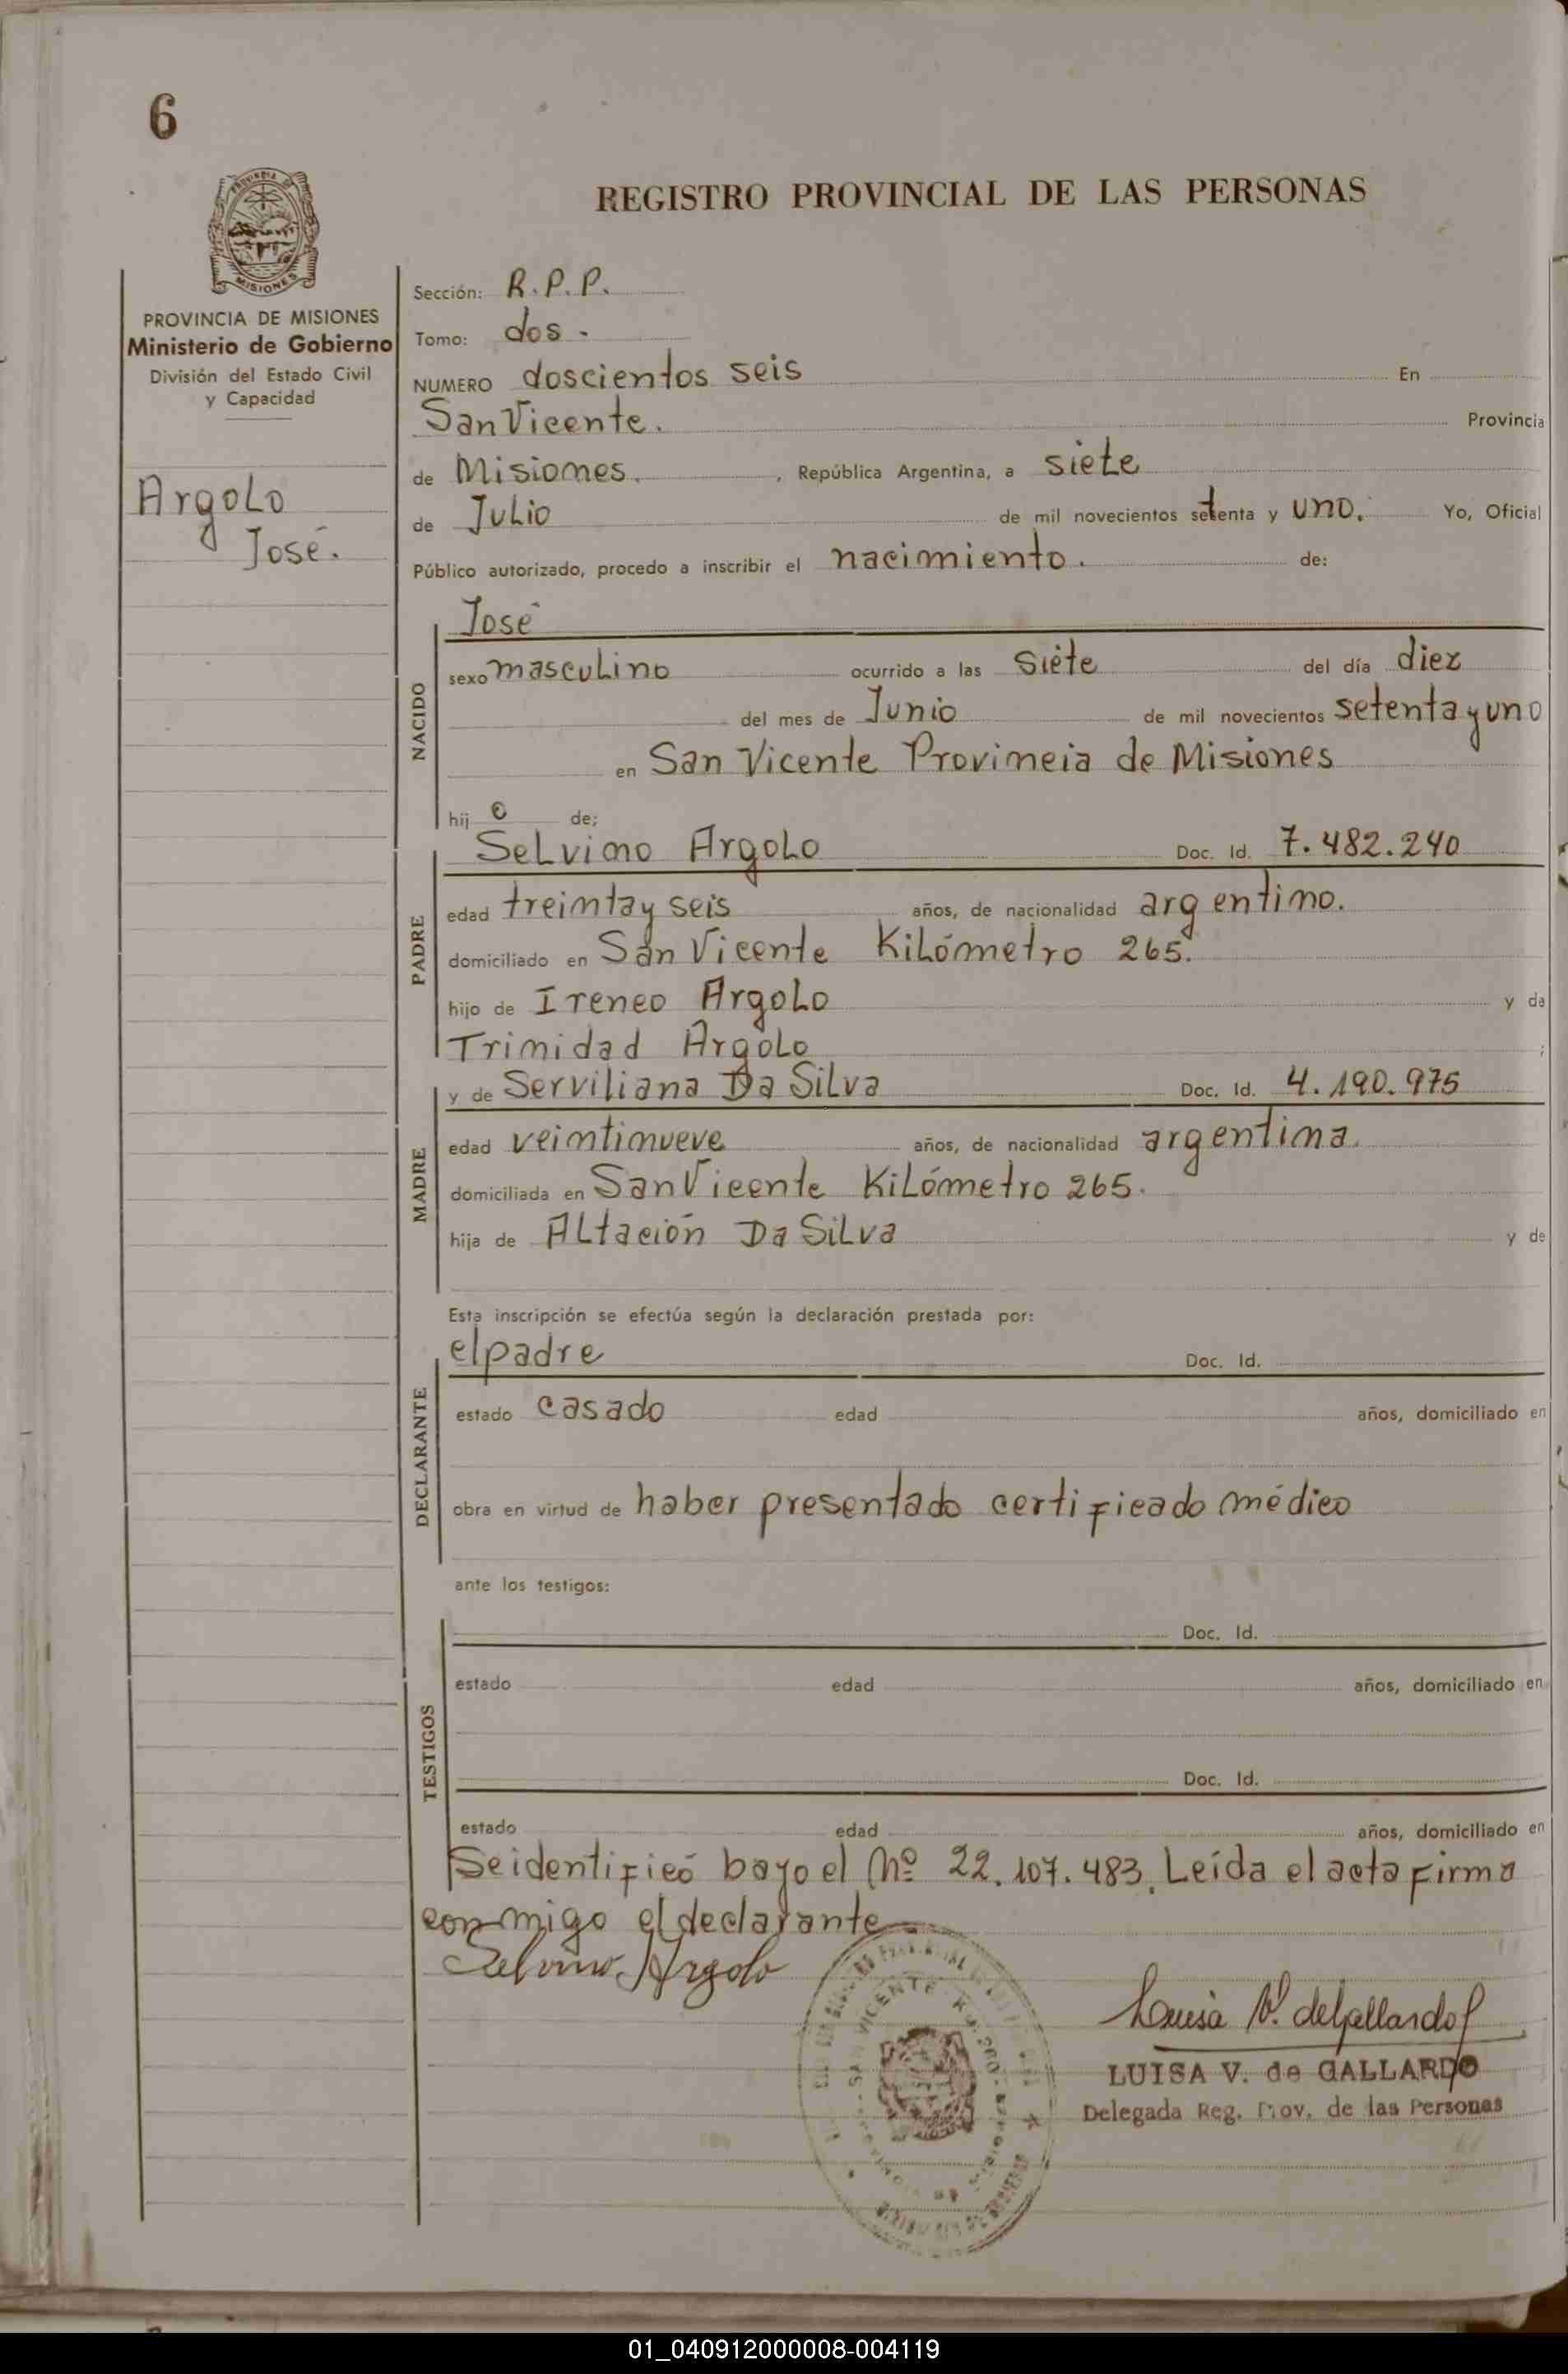 6
REGISTRO PROVINCIAL DE LAS PERSONAS
PROVINCIA DE
MISIONES
PROVINCIA DE MISIONES
Ministerio de Gobierno
División del Estado Civil
y Capacidad
Argolo
José.
Sección: R.P.P.
Tomo: dos.
NUMERO doscientos seis En
San Vicente. Provincia
de Misiones. , República Argentina, a siete
de Julio de mil novecientos setenta y uno. Yo, Oficial
Público autorizado, procedo a inscribir el nacimiento. de:
NACIDO
José
sexo masculino ocurrido a las siete del día diez
del mes de Junio de mil novecientos setenta y uno
en San Vicente Provincia de Misiones
hij o de;
PADRE
Selvino Argolo Doc. Id. 7.482.240
edad treinta y seis años, de nacionalidad argentino.
domiciliado en San Vicente Kilómetro 265.
hijo de Ireneo Argolo y de
Trinidad Argolo ;
MADRE
y de Serviliana Da Silva Doc. Id. 4.190.975
edad veintinueve años, de nacionalidad argentina.
domiciliada en San Vicente Kilómetro 265.
hija de Altación Da Silva y de
Esta inscripción se efectúa según la declaración prestada por:
DECLARANTE
el padre Doc. Id.
estado casado edad años, domiciliado en
obra en virtud de haber presentado certificado médico
ante los testigos:
TESTIGOS
Doc. Id.
estado edad años, domiciliado en
Doc. Id.
estado edad años, domiciliado en
Se identificó bajo el Nº 22.107.483. Leída el acta firma
conmigo el declarante
Selvino Argolo
SAN VICENTE
Luisa V. de Gallardo
LUISA V. de GALLARDO
Delegada Reg. Prov. de las Personas
01_040912000008-004119